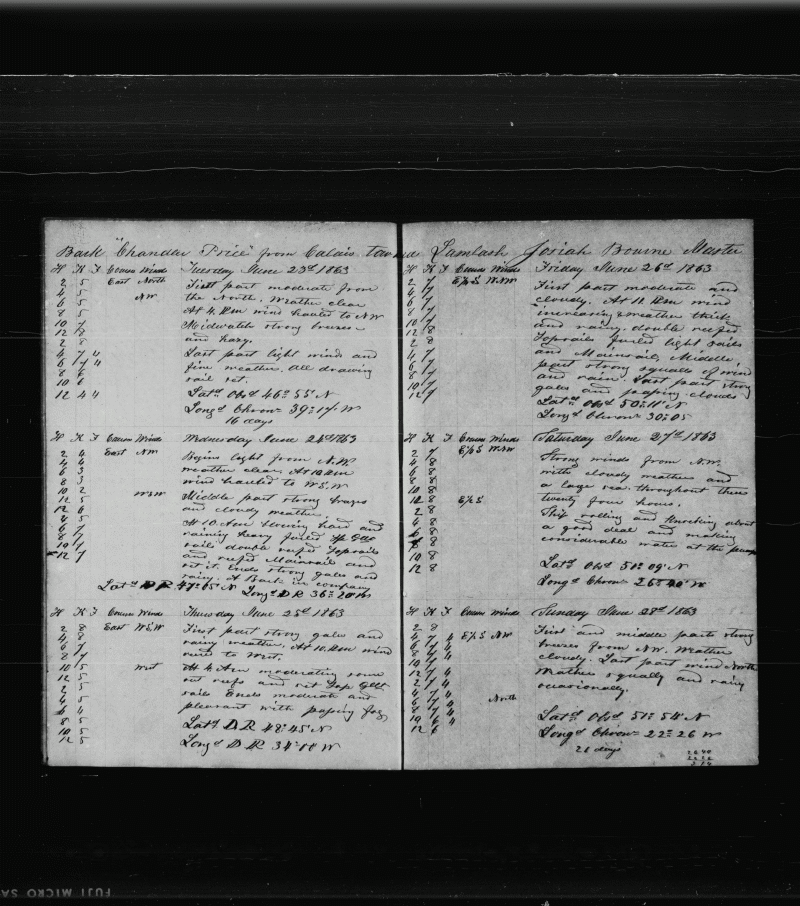 Bark "Chandler Price" from Calais toward Lamlash Josiah Bourne Master
H K F Courses Winds Tuesday June 23d 1863
2 5 East North First part moderate from
4 5 the North. Weather clear
6 5 NW At 4 Pm wind hauled to NW
8 5
10 7 Midwatch strong breezes
12 8 and hazy.
2 8
4 7 " Last part light winds and
6 7 " fine weather. All drawing
8 6 sail set.
10 6
12 4 " Latd Obsd 46° 55' N
Longd Chronr 39° 17' W
16 days
H K F Courses Winds Wednesday June 24th 1863
2 4 East NW Begins light from N.W.
4 4 weather clear. At 10 Pm
6 3 wind hauled to W.S.W
8 3
10 2 WSW Middle part strong breezes
12 5 and cloudy weather.
2 6
4 5 At 10 Am blowing hard and
6 7 raining heavy furled Gallt
8 7 sails double reefed Topsails
10 7 and reefed Mainsail and
12 7 set it. Ends strong gales and
rainy. A Bark in company
Latd DR Longd DR 36° 20' W
H K F Courses Winds Thursday June 25th 1863
2 8 East W.S.W First part strong gales and
4 8 rainy weather. At 10 Pm wind
6 7 veered to West.
8 7
10 5 West At 4 Am moderating some
12 5 out reefs and set Top Gallt
2 5 sails Ends moderate and
4 5 pleasant with passing fog
6 4
8 5 Latd DR 48° 45' N
10 5
12 5 Longd DR 34° 00' W
H K F Courses Winds Friday June 26th 1863
2 7 E½S W.NW First part moderate and
4 7 cloudy. At 11 Pm wind
6 7 increasing & weather thick
8 7 and rainy. double reefed
10 7 Topsails furled light sails
12 8 and Mainsail, Middle
2 8 part strong squalls of wind
4 7 and rain. Last part strong
6 7 gales and passing clouds
8 7
10 7 Latd Obsd 50° 11' N
12 7 Longd Chronr 30° 05
H K F Courses Winds Saturday June 27th 1863
2 7 E½S W.NW Strong winds from N.W.
4 8 with cloudy weather and
6 8 a large sea throughout these
8 8 twenty four hours.
10 8
12 8 E½S Ship rolling and knocking about
2 8 a good deal and making
4 8 considerable water at the pumps
6 8
8 8
10 8 Latd Obsd 51° 09' N
12 8 Longd Chronr 26° 40' W
H K F Courses Winds Sunday June 28th 1863
2 8 First and middle parts strong
4 7 4 E½S NW breezes from NW. Weather
6 7 4 cloudy. Last part wind North
8 7 4 Weather squally and rainy
10 7 occasionally.
12 7 4
2 7 4
4 7 "
6 7 " North
8 7 " Latd Obsd 51° 54' N
10 6 "
12 6 Longd Chronr 22° 26 W
21 days
26 40
22 26
FUJI MICRO SA